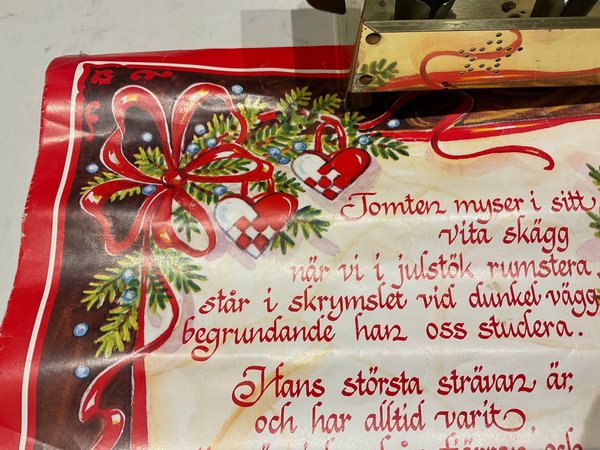 Tomten myser i sitt
vita skägg
när vi i julstök rumstera,
står i skrymslet vid dunkel vägg
begrundande han oss studera.
Hans största strävan är,
och har alltid varit,
och